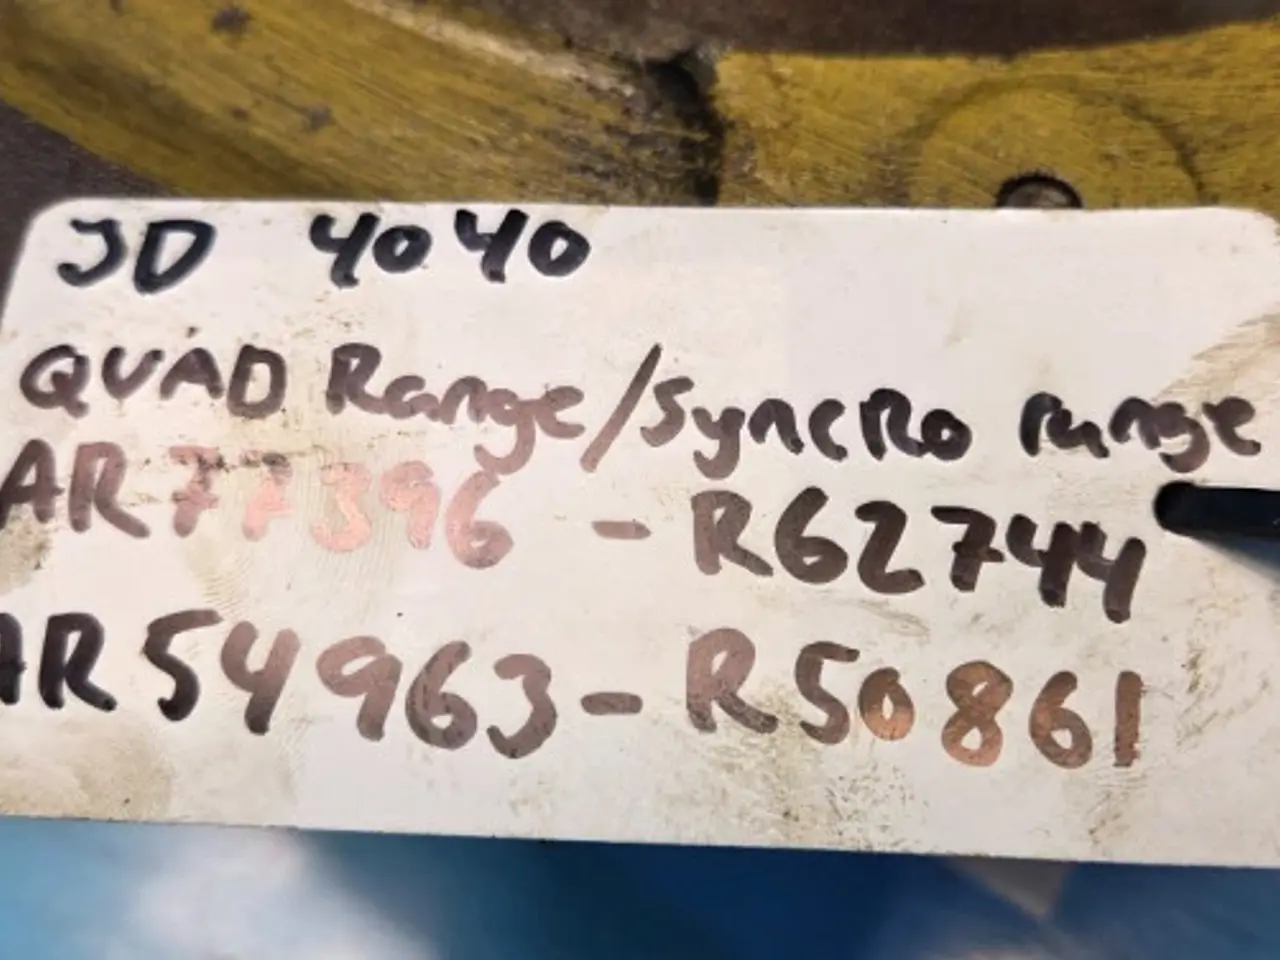 JD 4040
QUAD Range/Syncro range
AR77396 - R62744
AR54963 - R50861